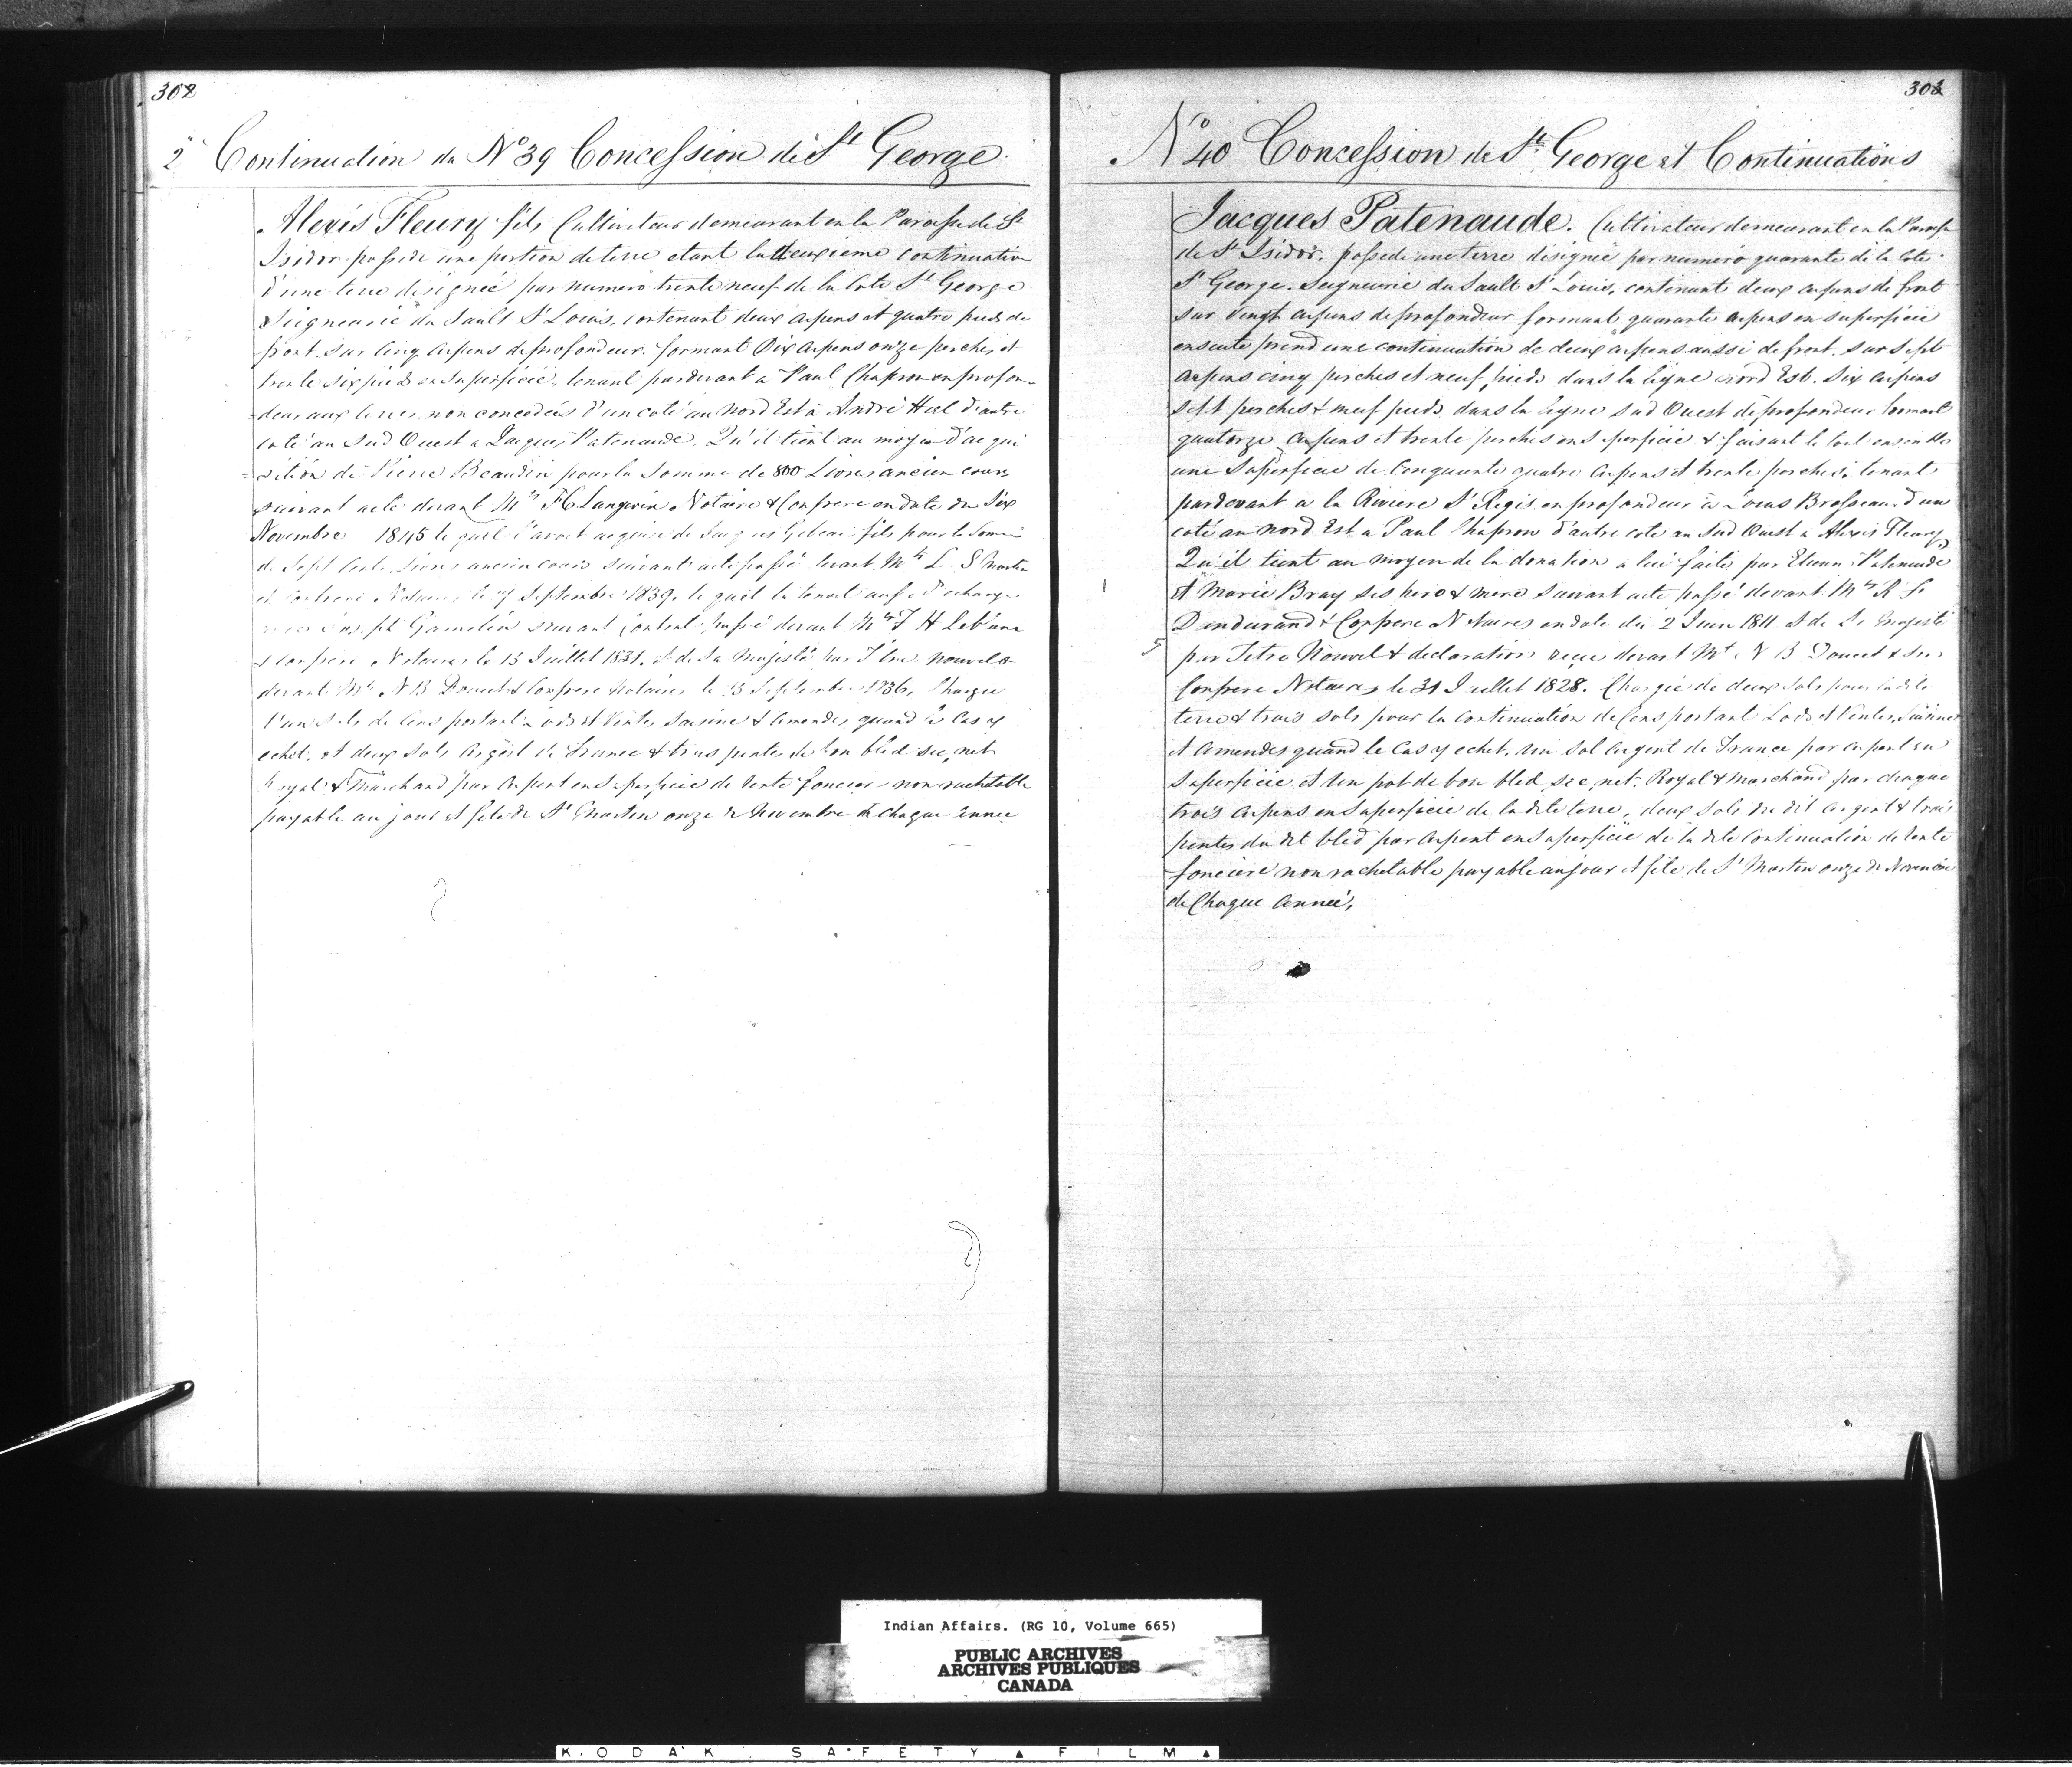 302
2e Continuation du No 39 Concession de St George
Alexis Fleury fils Cultivateur demeurant en la Paroisse de St
Isidor possede une portion de terre etant la deuxieme continuation
d'une terre designée par numero trente neuf de la Cote St George
Seigneurie du Sault St Louis, contenant deux arpens et quatre pieds de
front sur cinq arpens de profondeur formant dix arpens onze perches et
trente six pieds en superficie, tenant pardevant a Paul Chapron en profon-
deur aux terres non concedées d'un coté au Nord Est à André Hiel d'autre
coté au Sud Ouest a Jacques Patenaude. Qu'il tient au moyen d'acqui
=sition de Pierre Beaudin pour la Somme de 800 Livres ancien cours
suivant acte devant Mtre Langevin Notaire & Confrere en date du Six
Novembre 1845 le quel l'avoit acquise de fils pour la Somme
de Sept Cents Livres ancien cours suivant acte passé devant Mtre L S Martin
et Confrere Notaires le Septembre 1839, le quel la tenoit
Gamelin suivant Contrat passé devant Mtre F H Leblanc
& Confrere Notaires le 13 Juillet 1831, & de Sa Majesté par Titre Nouvel
devant Mtre N B Doucet & Confrere Notaires le 13 Septembre 1836, Chargée
d'un Sols de Cens portant Lods et Ventes Saisine & Amendes quand le Cas y
echet, et deux Sols Argent de France & trois pintes de bon bled sec, net
Royal & Marchand par Arpent en Superficie de rente fonciere non rachetable
payable au jour et fete de St Martin onze de Novembre de chaque année
303
No 40 Concession de St George et Continuations
Jacques Patenaude. Cultivateur demeurant en la Paroisse
de St Isidor. possede une terre désignée par numero quarante de la Cote
St George. Seigneurie du Sault St Louis, contenant deux arpens de front
sur vingt arpens de profondeur formant quarante arpens en superficie
ensuite prend une continuation de deux arpens aussi de front sur sept
arpens cinq perches et neuf pieds dans la ligne nord Est. Six arpens
sept perches & neuf pieds dans la ligne Sud Ouest de profondeur formant
quatorze arpens et trente perches en superficie & faisant le tout ensemble
une Superficie de Cinquante quatre arpens et trente perches, tenant
pardevant a la Riviere St Regis en profondeur à Louis Brosseau d'un
coté au Nord Est a Paul Chapron d'autre cote au Sud Ouest a Alexis Fleury
Qu'il tient au moyen de la donation a lui faite par Etienne Patenaude
& Marie Bray ses pere & mere suivant acte passé devant Mtre
Dandurand & Confrere Notaires en date du 2 Juin 1811 & de Sa Majesté
par Titre Nouvel & declaration reçue devant Mtre N B Doucet & Son
Confrere Notaires le 31 Juillet 1828. Chargée de deux Sols pour la dite
terre & trois sols pour la continuation de Cens portant Lods et Ventes, Saisines
et Amendes quand le Cas y echet, un Sol Argent de France par arpent en
Superficie et un pot de bon bled sec, net, Royal & Marchand par chaque
trois arpens en Superficie de la dite terre, deux Sols du dit argent & trois
pintes du dit bled par arpent en Superficie de la dite continuation de rente
fonciere non rachetable payable au jour et fete de St Martin onze de Novembre
de Chaque année,
Indian Affairs. (RG 10, Volume 665)
PUBLIC ARCHIVES
ARCHIVES PUBLIQUES
CANADA
KODAK SAFETY ▲ FILM ▲